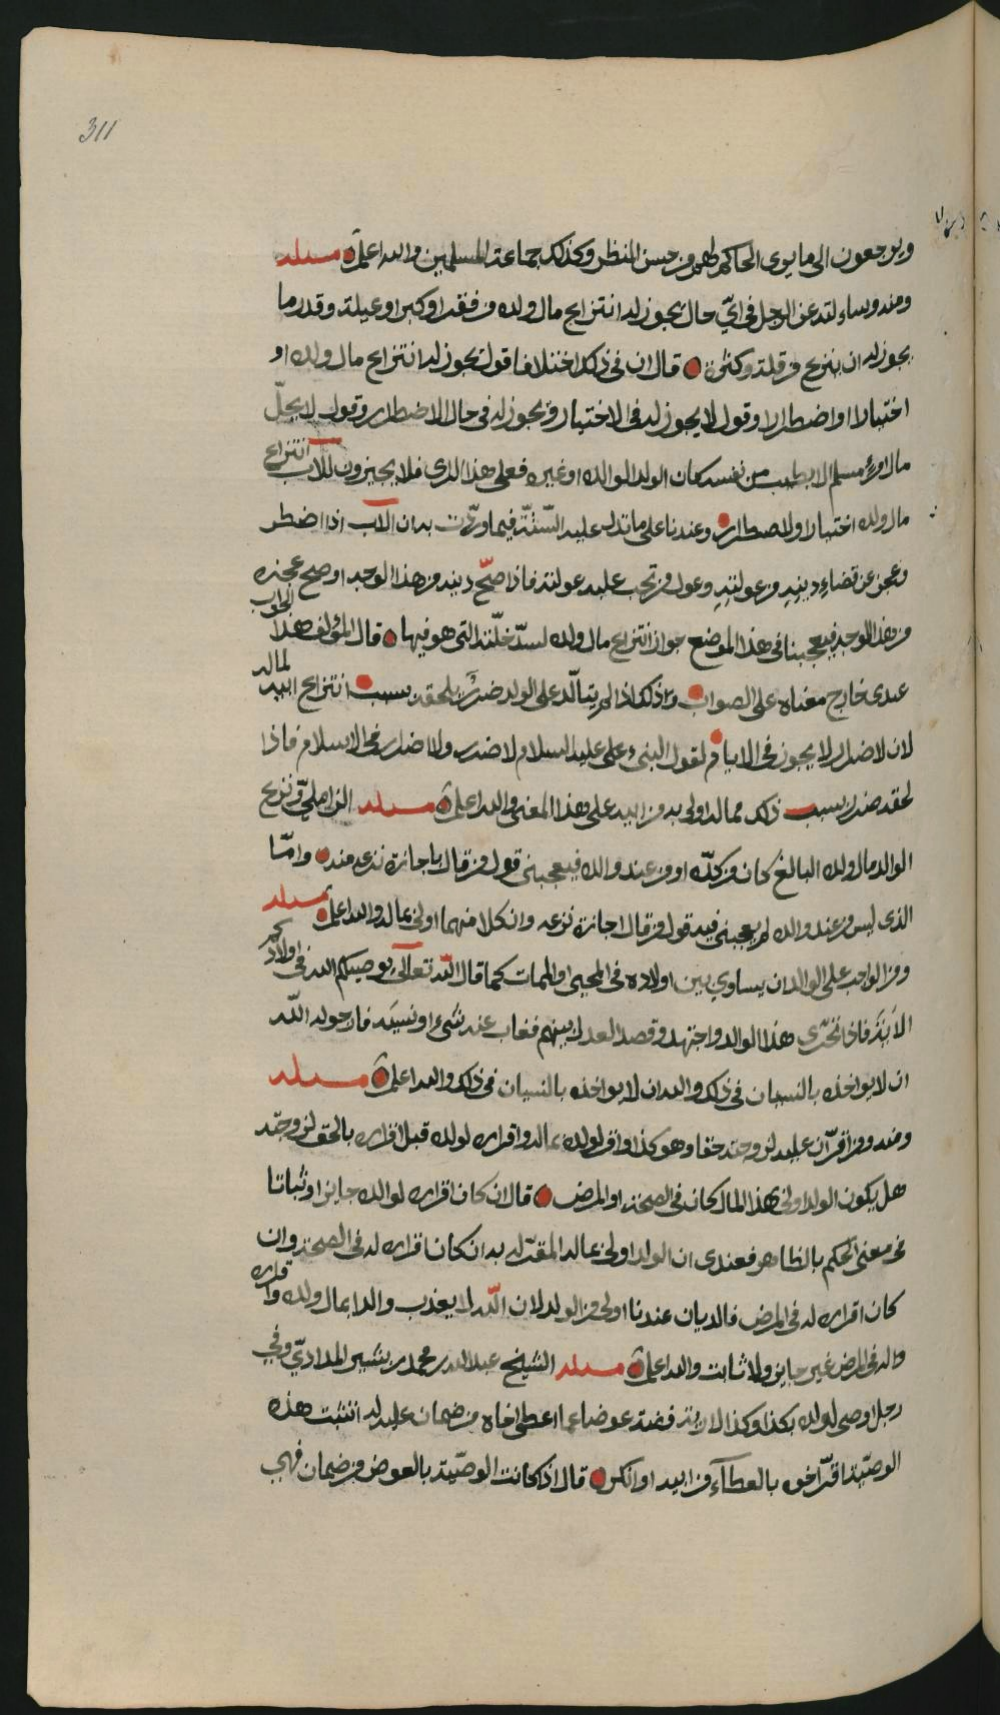 311
ويرجعون الى ما يرى الحاكم لهم من حسن النظر وكذلك جماعة المسلمين والله اعلم مسئلة
ومنه وسئلته عن الرجل في اي حال يجوز له انتزاع مال ولده من فقر او كبر او عيلة وقدر ما
يجوز له ان ينزع من قلة وكثرة قال ان في ذلك اختلافا قول يجوز له انتزاع مال ولده
اختيارا او اضطرارا وقول لا يجوز له في الاختيار ويجوز له في حال الاضطرار وقول لا يحلّ
مال امرئ مسلم الا بطيب من نفسه كان الولد الوالد او غيره فعلى هذا الرأي فلا يجيزون للاب انتزاع
مال ولده اختيارا ولا اضطرارا وعندنا على ما تدل عليه السّنّة فيما وردت به ان الاب اذا اضطر
وعجز عن قضاء دينه وعولته وعول من تجب عليه عولته فاذا صحّ دينه من هذا الوجه او صح عجزه
من هذا الوجه فيعجبنا في هذا الموضع جواز انتزاع مال ولده لسدّ خلّته التي هو فيها قال المؤلف هذا الجواب
عندي خارج معناه على الصواب وذلك اذا لم يتولد على الولد ضرر يلحقه بسبب انتزاع ابيه لماله
لان الاضرار لا يجوز في الاسلام لقول النبي عليه السلام لا ضرر ولا اضرار في الاسلام فاذا
لحقه ضرر بسبب ذلك فماله اولى به من ابيه على هذا المعنى والله اعلم مسئلة الزاملي ومن نزع
الوالد مال ولده البالغ كان من كدّه او من عند والده فيعجبني قول من قال باجازة نزعه منه وامّا
الذي ليس من عند والده لم يعجبني فيه قول من قال اجازة نزعه وان كلا منهما اولى بماله والله اعلم مسئلة
ومن الواجب على الوالد ان يساوي بين اولاده في المحيى والممات كما قال الله تعالى يوصيكم الله في اولادكم
الاية فاذا تحرّى هذا الوالد واجتهد وقصد العدل بينهم فغاب عنه شيء او نسيه فارجو له الله
ان لا يواخذه بالنسيان في ذلك والله ان لا يواخذه بالنسيان في ذلك والله اعلم مسئلة
ومنه ومن اقرّ ان عليه لزوجته حقا وهو كذا واقر لولده بماله واقراره لولده قبل اقراره بالحق لزوجته
هل يكون الولد اولى بهذا المال كان في الصحة او المرض قال ان كان اقراره لوالده جايزا وثباتا
في معنى الحكم بالظاهر فعندي ان الولد اولى بماله المقرّ له به ان كان اقراره له في الصحة وان
كان اقراره له في المرض فالديان عندنا اولى من الولد لان الله لا يعذب والدا بمال ولده واقراره
والده في المرض غير جايز ولا ثابت والله اعلم مسئلة الشيخ عبد الله بن محمد بن بشير المدادي وفي
رجل اوصى لولده بكذا وكذا لارية فضة عوضا عما اعطى اخاه من ضمان عليه له اتثبت هذه
الوصيّة اقرّ اخوه بالعطآء من ابيه او انكر قال اذا كانت الوصيّة بالعوض من ضمان فهي